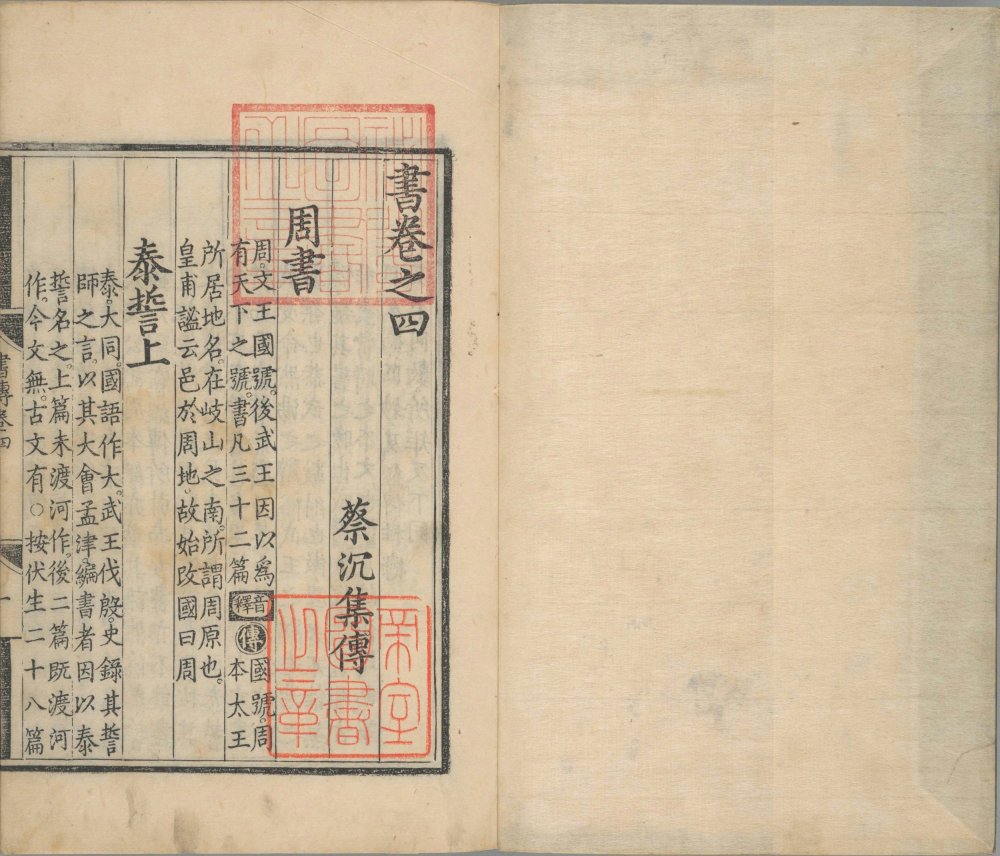 書卷之四
蔡沉集傳
周書
周。文王國號。後武王因以爲
有天下之號。書凡三十二篇
音釋
傳
國號。周
本太王
所居地名。在岐山之南。所謂周原也。
皇甫謐云邑於周地。故始改國曰周
泰誓上
泰。大同。國語作大。武王伐殷。史錄其誓
師之言。以其大會孟津。編書者因以泰
誓名之。上篇未渡河作。後二篇旣渡河
作。今文無。古文有○按伏生二十八篇
書傳卷四
一
帝室
圖書
之章